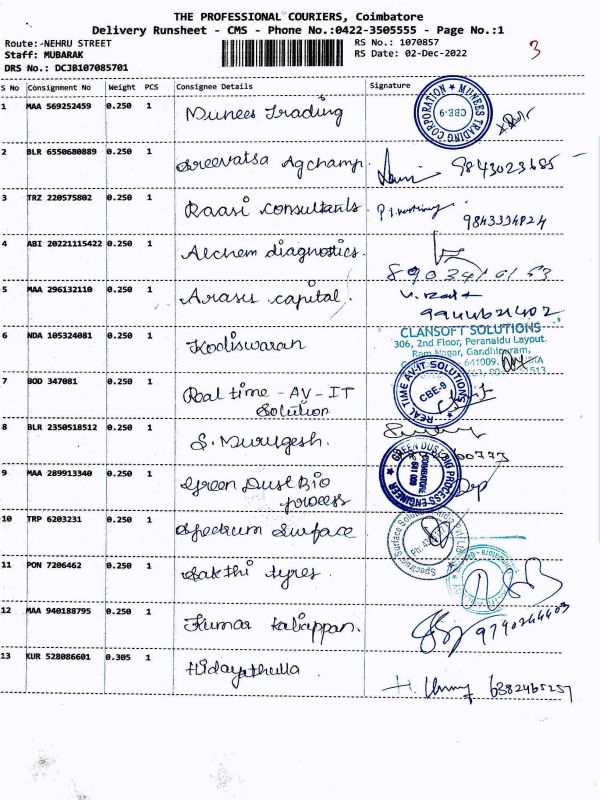 THE PROFESSIONAL COURIERS, Coimbatore
Delivery Runsheet - CMS - Phone No.:0422-3505555 - Page No.:1
Route:-NEHRU STREET RS No.: 1070857
Staff: MUBARAK RS Date: 02-Dec-2022 3
DRS No.: DCJB107085701
S No Consignment No Weight PCS Consignee Details Signature
1 MAA 569252459 0.250 1 Munees Trading MUNEES TRADING CORPORATION CBE-9
2 BLR 6550680889 0.250 1 Sreevatsa Agchamp. 9843023685
3 TRZ 220575802 0.250 1 Raasi consultants 9843334824
4 ABI 20221115422 0.250 1 Alchem diagnostics.
5 MAA 296132110 0.250 1 Arasu capital. 9944621402
6 NDA 105324081 0.250 1 Kodiswaran CLANSOFT SOLUTIONS
306, 2nd Floor, Peranaidu Layout
Ram Nagar, Gandhipuram,
641009.
7 BOD 347081 0.250 1 Real time - AV - IT REAL TIME AV-IT SOLUTIONS CBE-9
Solution
8 BLR 2350518512 0.250 1 S. Murugesh.
9 MAA 289913340 0.250 1 Green Dust Bio GREEN DUST BIO PROCESS ENGINEER COIMBATORE
process
10 TRP 6203231 0.250 1 Spectrum Surface
11 PON 7206462 0.250 1 Sakthi tyres.
12 MAA 940188795 0.250 1 Kumar kaliappan. 9790244403
13 KUR 528086601 0.305 1 Hidayathulla 6382465257